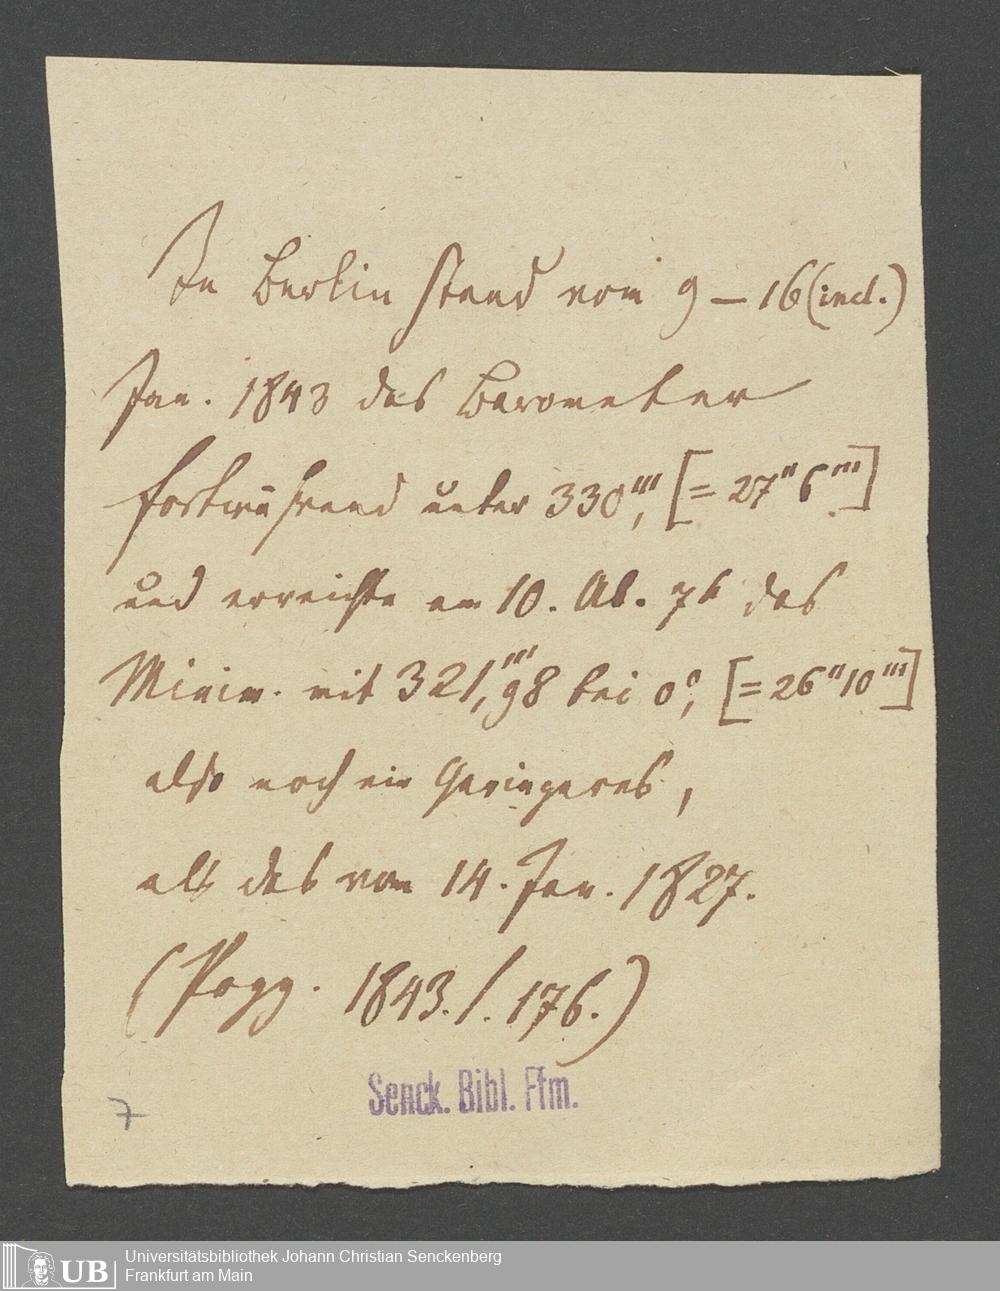 In Berlin stand vom 9 – 16 (incl.)
Jan. 1843 das Barometer
fortwährend unter 330''', [= 27'' 6''']
und erreichte am 10. Ab. 7h das
Minim. mit 321,'''98 bei 0°, [= 26'' 10''']
also noch ein Geringeres,
als das vom 14. Jan. 1827.
(Pogg. 1843. /. 176.)
Senck. Bibl. Ffm.
7
UB
Universitätsbibliothek Johann Christian Senckenberg
Frankfurt am Main